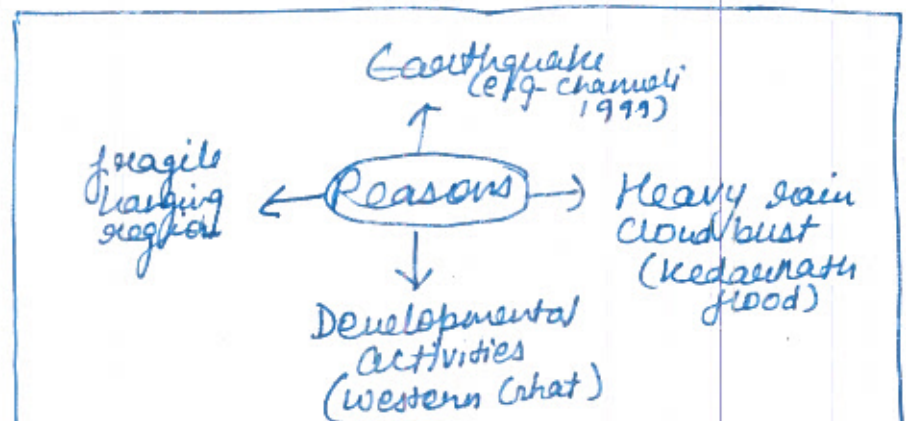 Earthquake
(e.g- Chamoli
1999)
fragile
hanging
region
Reasons
Heavy rain
Cloud bust
(Kedarnath
flood)
Developmental
activities
(Western Ghat)